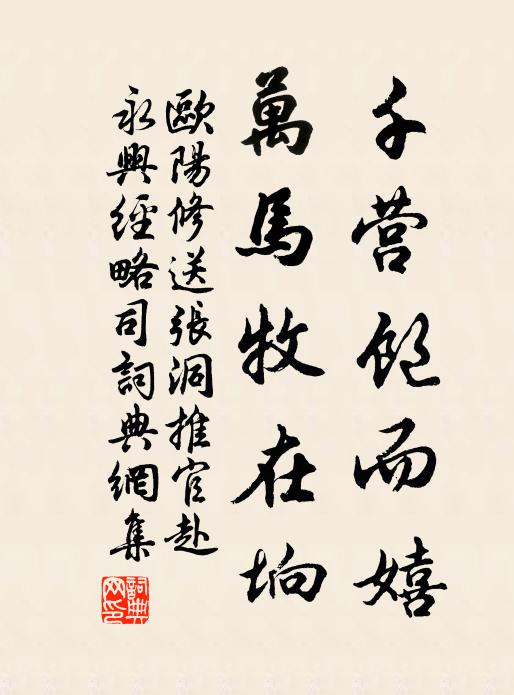 千营饱而嬉
萬馬牧在坰
歐陽修送張洞推官赴
永興經略司詞典網集
詞典網印